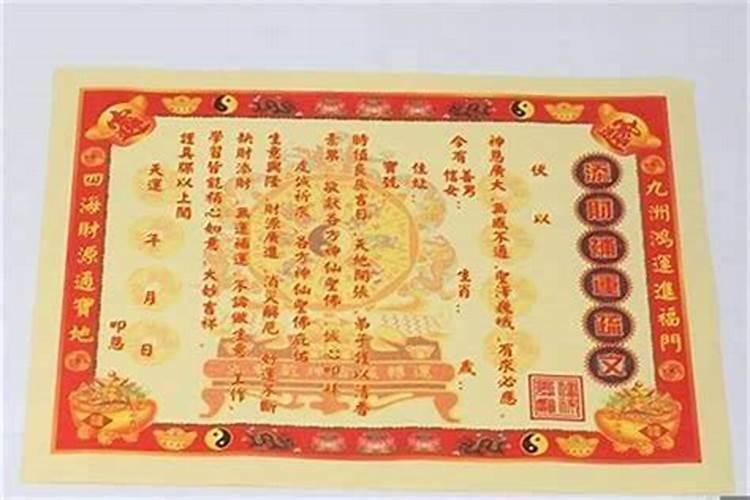 九洲鴻運進福門
添財補運疏文
伏以
神恩廣大 無感不通 聖澤巍峨 有求必應
今有 善男 信女： 生肖： 歲：
住址：
寶號
時值良辰吉日 天地開張 弟子僅以清香
素果 敬獻各方神仙聖佛 誠心叩拜
虔誠祈求 各方神仙聖佛庇佑
生意興隆 財源廣進 消災解厄 好運不斷
缺財添財 無運補運 不論做生意、工作、
學習皆能稱心如意、大妙吉祥、
謹具疏以上聞
天運 年 月 日 叩恩
四海財源通寶地